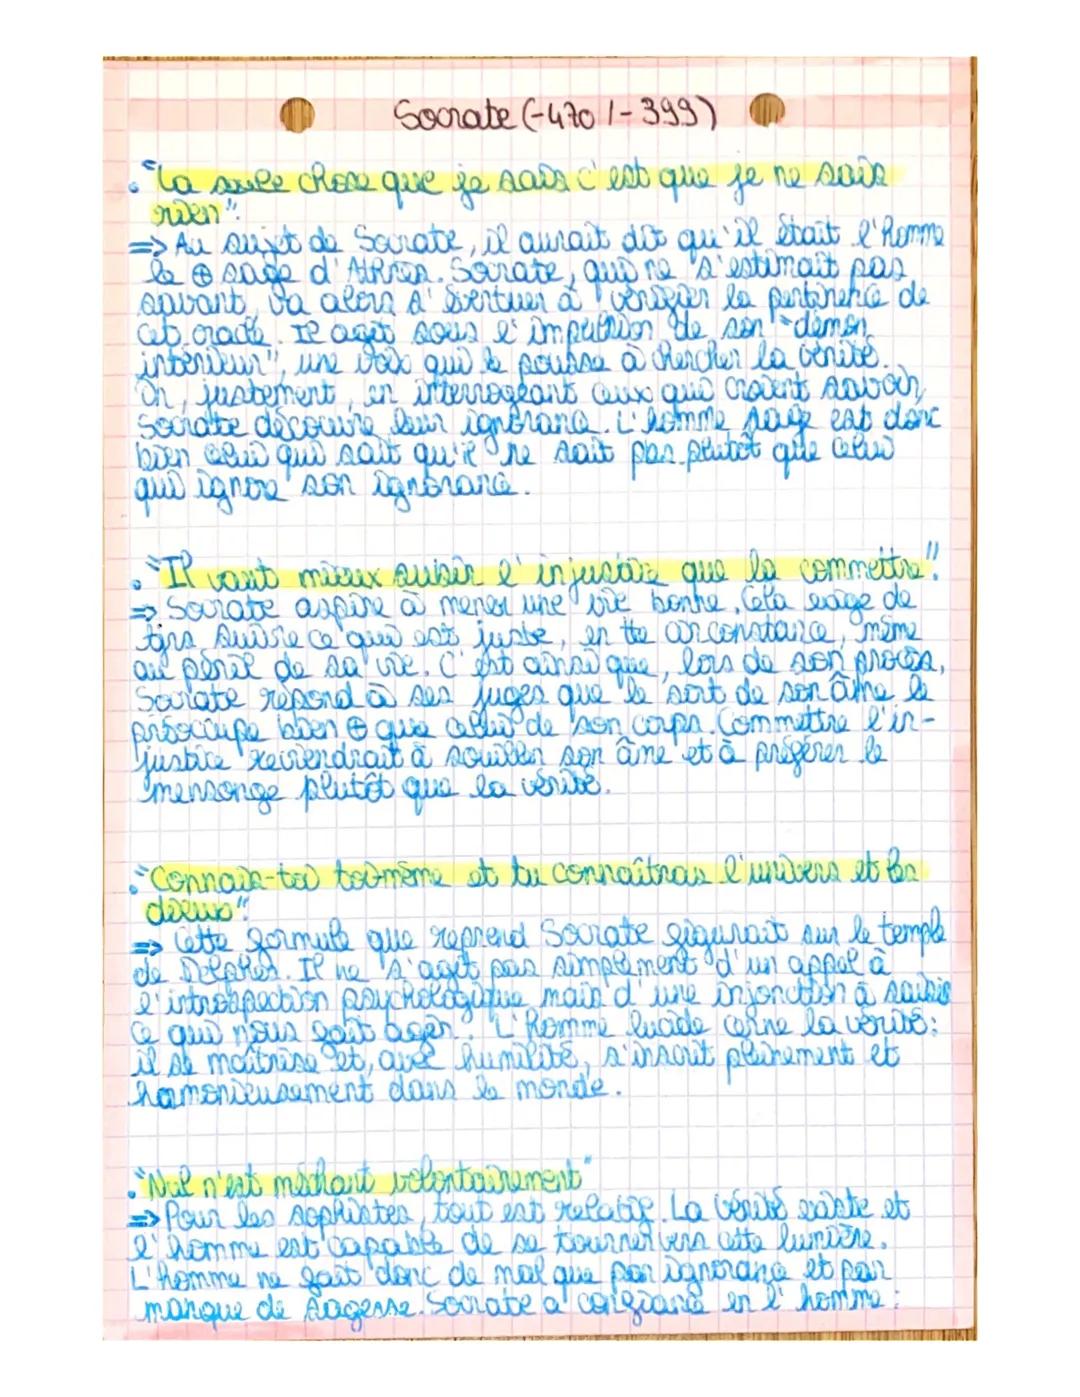 Socrate (-470 / -399)
• "La seule chose que je sais c'est que je ne sais
rien".
=> Au sujet de Socrate, il aurait dit qu'il était l'Homme
le ⊕ sage d'Athènes. Socrate, qui ne s'estimait pas
savant, va alors s'évertuer à vérifier la pertinence de
cet oracle. Il agit sous l'impulsion de son "démon
intérieur", une voix qui le pousse à chercher la vérité.
Or, justement, en interrogeant ceux qui croient savoir,
Socrate découvre leur ignorance. L'homme sage est donc
bien celui qui sait qu'il ne sait pas plutôt que celui
qui ignore son ignorance.
• "Il vaut mieux subir l'injustice que la commettre".
=> Socrate aspire à mener une vie bonne. Cela exige de
tjrs suivre ce qui est juste, en tte circonstance, même
au péril de sa vie. C'est ainsi que, lors de son procès,
Socrate répond à ses juges que le sort de son âme le
préoccupe bien ⊕ que celui de son corps. Commettre l'in-
justice reviendrait à souiller son âme et à préférer le
mensonge plutôt que la vérité.
• "Connais-toi toi même et tu connaîtras l'univers et les
dieux".
=> Cette formule que reprend Socrate figurait sur le temple
de Delphes. Il ne s'agit pas simplement d'un appel à
l'introspection psychologique mais d'une injonction à saisir
ce qui nous fait agir. L'homme lucide cerne la vérité :
il se maîtrise et, avec humilité, s'inscrit pleinement et
harmonieusement dans le monde.
• "Nul n'est méchant volontairement"
=> Pour les sophistes, tout est relatif. La vérité existe et
l'homme est capable de se tourner vers cette lumière.
L'homme ne fait donc de mal que par ignorance et par
manque de sagesse. Socrate a confiance en l'homme :